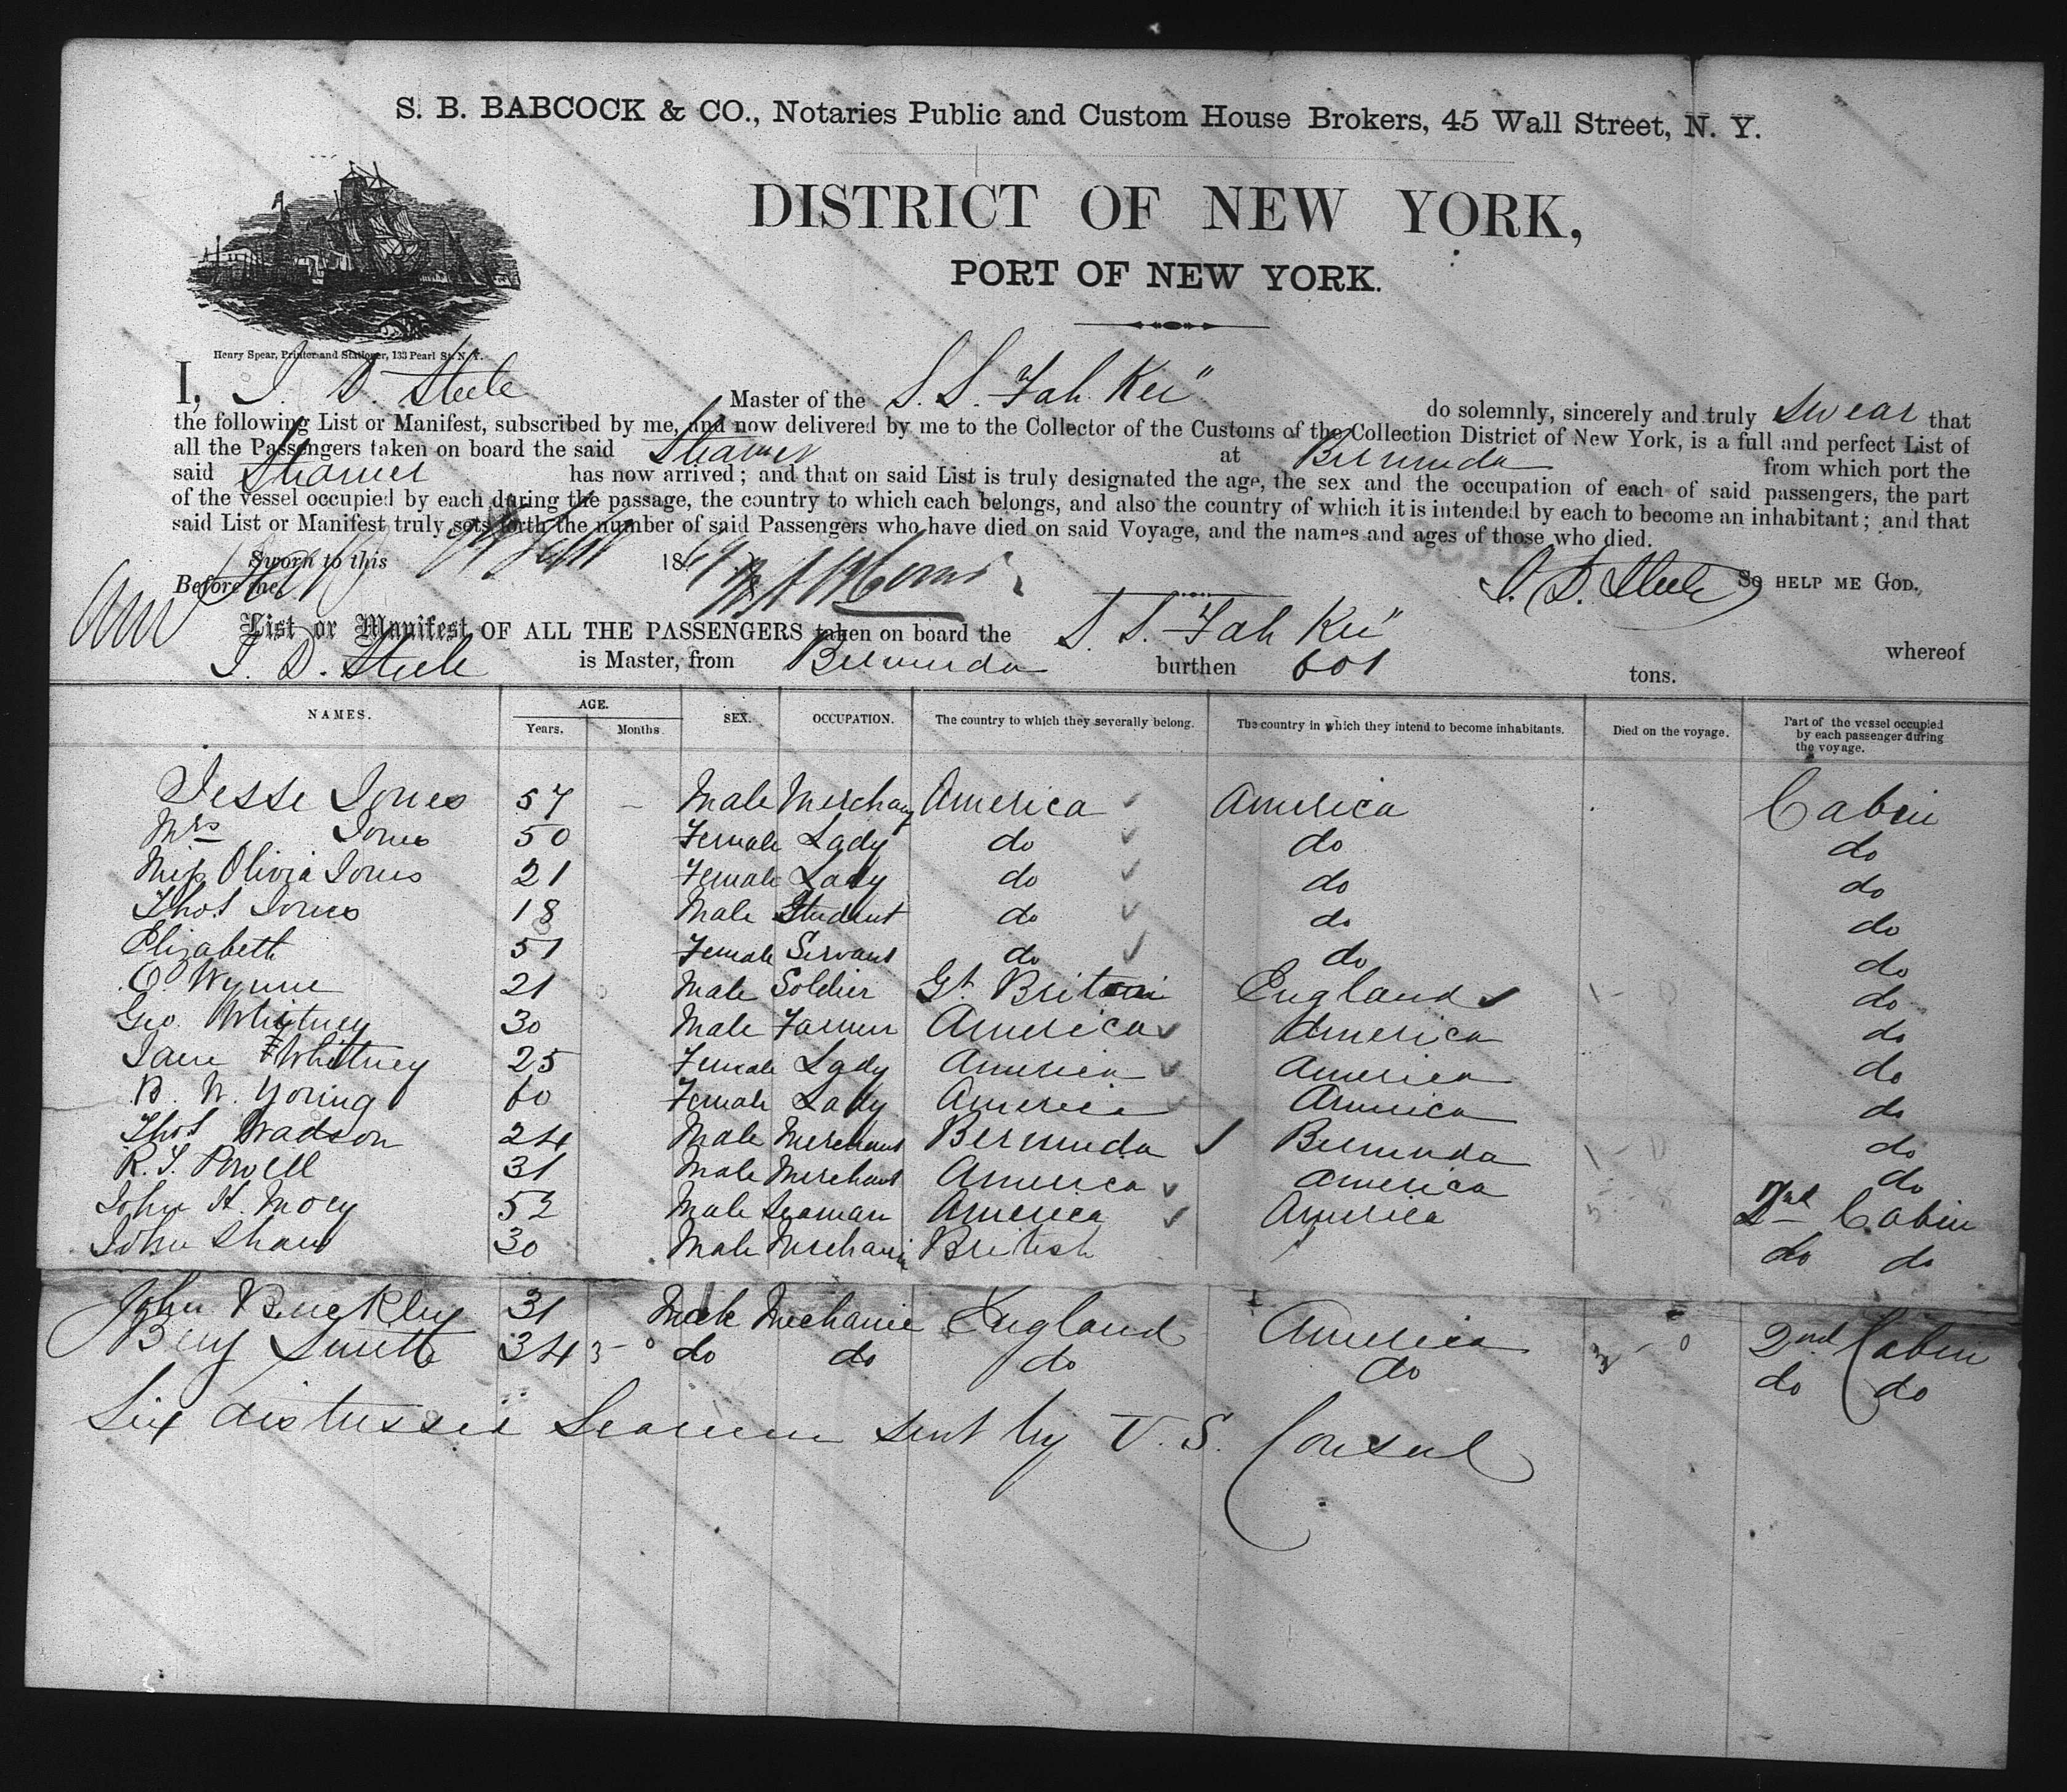 S. B. BABCOCK & CO., Notaries Public and Custom House Brokers, 45 Wall Street, N. Y.
DISTRICT OF NEW YORK,
PORT OF NEW YORK.
Henry Spear, Printer and Stationer, 133 Pearl St. N.Y.
I, J. D. Steele Master of the S. S. "Fah Kee" do solemnly, sincerely and truly swear that
the following List or Manifest, subscribed by me, and now delivered by me to the Collector of the Customs of the Collection District of New York, is a full and perfect List of
all the Passengers taken on board the said Steamer at Bermuda from which port the
said Steamer has now arrived; and that on said List is truly designated the age, the sex and the occupation of each of said passengers, the part
of the vessel occupied by each during the passage, the country to which each belongs, and also the country of which it is intended by each to become an inhabitant; and that
said List or Manifest truly sets forth the number of said Passengers who have died on said Voyage, and the names and ages of those who died.
Sworn to this 1869
Before me J. D. Steele So HELP ME GOD.
List or Manifest OF ALL THE PASSENGERS taken on board the S. S. Fah Kee" whereof
J. D. Steele is Master, from Bermuda burthen 601 tons.
NAMES. AGE. Years. Months. SEX. OCCUPATION. The country to which they severally belong. The country in which they intend to become inhabitants. Died on the voyage. Part of the vessel occupied by each passenger during the voyage.
Jesse Jones 57 – Male Merchant America America Cabin
Mrs Jones 50 Female Lady do do do
Miss Olivia Jones 21 Female Lady do do do
Thos Jones 18 Male Student do do do
Elizabeth 51 Female Servant do do do
O. Wynne 21 Male Soldier Gt. Britain England do
Geo. Whitney 30 Male Farmer America America do
Jane Whittney 25 Female Lady America America do
B. W. Young 60 Female Lady America America do
Thos Wadson 24 Male Merchant Bermuda Bermuda do
R. T. Powell 31 Male Merchant America America do
John H. Mocy 52 Male Seaman America America 2nd Cabin
John Shaw 30 Male Mechanic British do do
John Buckley 31 Male Mechanic England America 2nd Cabin
Benj Smith 34 do do do do do do
Six distressed Seamen sent by U. S. Consul